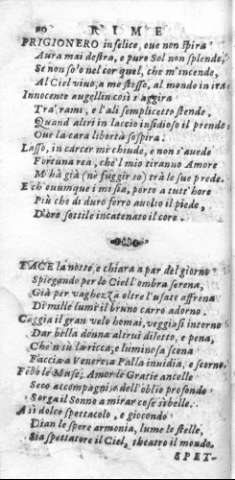 20 RIME
PRIGIONERO infelice, oue non spira
Aura mai destra, e pure Sol non splende,
Se non s'o nel cor quel, che m'incende,
Al Ciel viuo, a me stesso, al mondo in ira:
Innocente augellin così s'aggira
Tra' rami, e l'ali semplicetto stende,
Quand' altri in laccio insidioso il prende
Oue la cara libertà sospira.
Lasso, in carcer mi chiudo, e non s'auede
Fortuna rea, che'l mio tiranno Amore
M'hà già (nè fuggir so) trà le sue prede.
E ch'ouunque i mi sia, porto a tutt'hore
Più che di duro ferro auolto il piede,
D'oro sottile incatenato il core.
TACE la notte, e chiara a par del giorno
Spiegando per lo Ciel l'ombra serena,
Già per vaghezza oltre l'usato affrena
Di mille lumi il bruno carro adorno.
Caggia il gran velo homai, veggiasi intorno
Dar bella donna altrui diletto, e pena,
Che'n sù la ricca, e luminosa scena
Faccia a Venere, a Palla inuidia, e scorno.
Fide le Muse, Amor le Gratie ancelle
Seco accompagni, e dell'oblio profondo
Sorga il Sonno a mirar cose sì belle.
A sì dolce spettacolo, e giocondo
Dian le spere armonia, lume le stelle,
Sia spettatore il Ciel, theatro il mondo.
SPET-